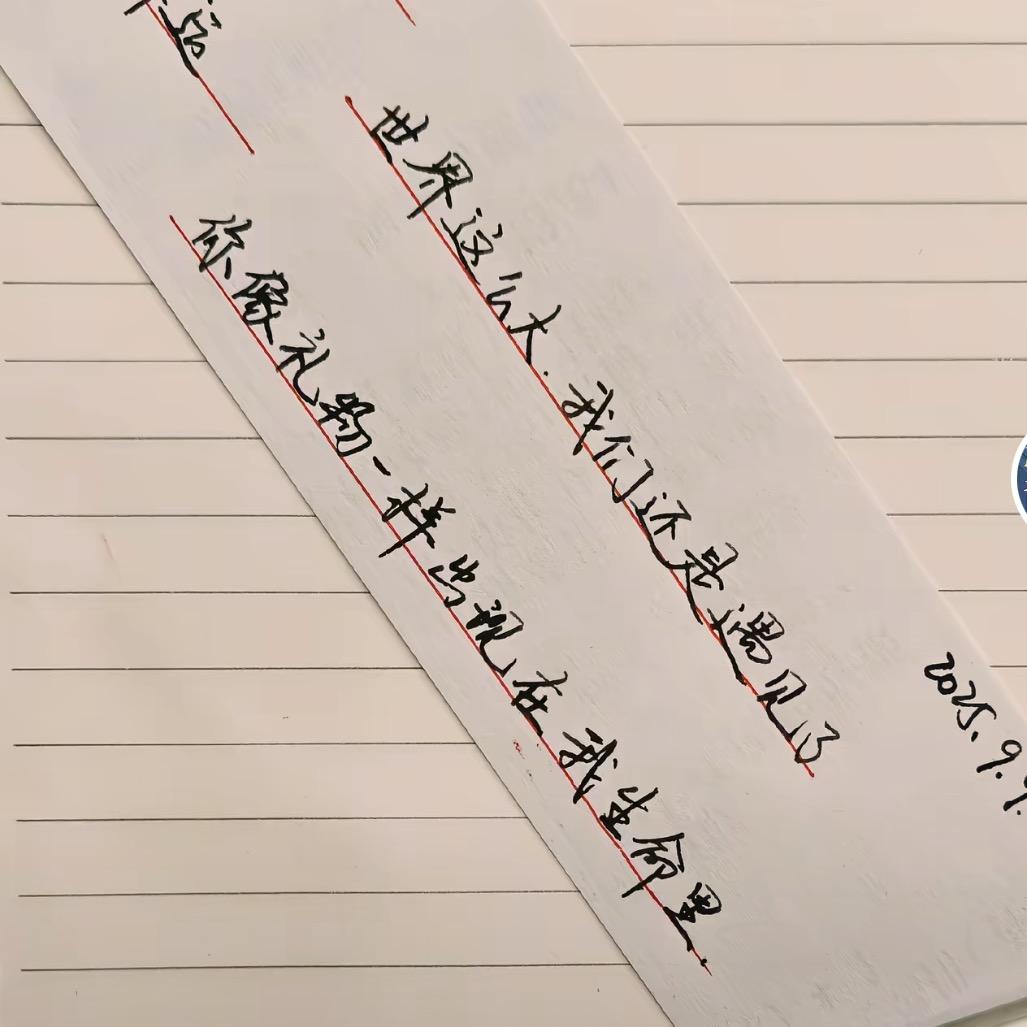 运
世界这么大.我们还是遇见了
你像礼物一样出现在我生命里.
2025.9.9.